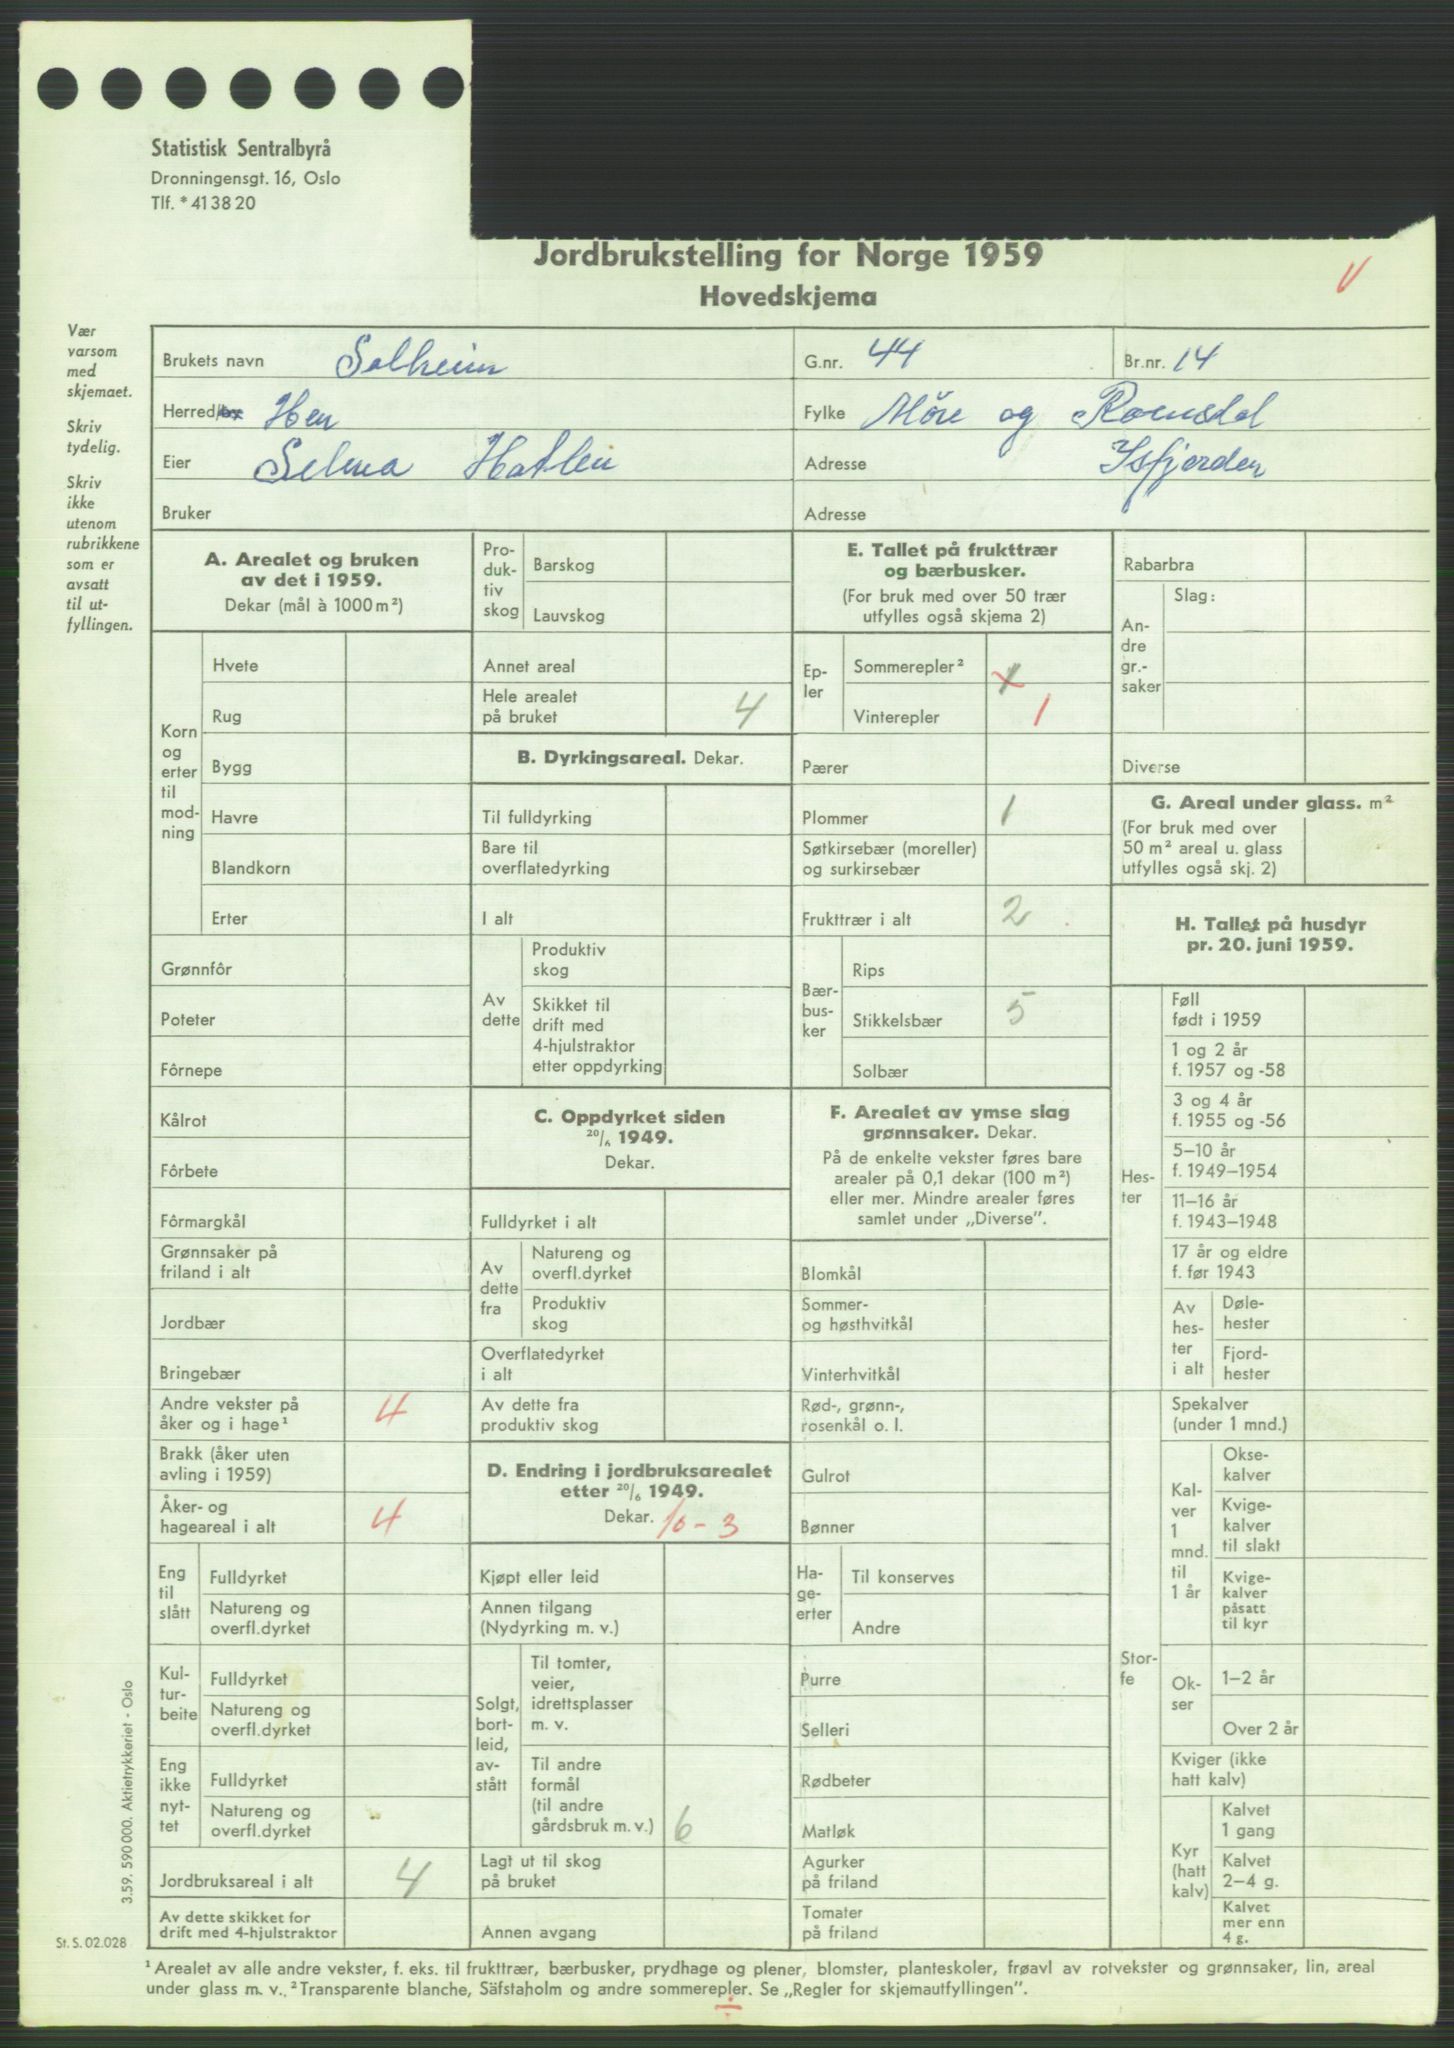 Statistisk Sentralbyrå
Dronningensgt. 16, Oslo
Tlf. * 41 38 20
Jordbrukstelling for Norge 1959
Hovedskjema
V
Vær
varsom
med
skjemaet.
Skriv
tydelig.
Skriv
ikke
utenom
rubrikkene
som er
avsatt
til ut-
fyllingen.
Brukets navn Solheim G.nr. 44 Br.nr. 14
Herred/by Hen Fylke Møre og Romsdal
Eier Selma Hatlen Adresse Isfjorden
Bruker Adresse
A. Arealet og bruken
av det i 1959.
Dekar (mål à 1000 m²)
Korn
og
erter
til
mod-
ning
Hvete
Rug
Bygg
Havre
Blandkorn
Erter
Grønnfôr
Poteter
Fôrnepe
Kålrot
Fôrbete
Fôrmargkål
Grønnsaker på
friland i alt
Jordbær
Bringebær
Andre vekster på
åker og i hage¹ 4
Brakk (åker uten
avling i 1959)
Åker- og
hageareal i alt 4
Eng
til
slått
Fulldyrket
Natureng og
overfl.dyrket
Kul-
tur-
beite
Fulldyrket
Natureng og
overfl.dyrket
Eng
ikke
nyt-
tet
Fulldyrket
Natureng og
overfl.dyrket
Jordbruksareal i alt 4
Av dette skikket for
drift med 4-hjulstraktor
Pro-
duk-
tiv
skog
Barskog
Lauvskog
Annet areal
Hele arealet
på bruket 4
B. Dyrkingsareal. Dekar.
Til fulldyrking
Bare til
overflatedyrking
I alt
Av
dette
Produktiv
skog
Skikket til
drift med
4-hjulstraktor
etter oppdyrking
C. Oppdyrket siden
20/6 1949.
Dekar.
Fulldyrket i alt
Av
dette
fra
Natureng og
overfl.dyrket
Produktiv
skog
Overflatedyrket
i alt
Av dette fra
produktiv skog
D. Endring i jordbruksarealet
etter 20/6 1949.
Dekar. 10-3
Kjøpt eller leid
Annen tilgang
(Nydyrking m. v.)
Solgt,
bort-
leid,
av-
stått
Til tomter,
veier,
idrettsplasser
m. v.
Til andre
formål
(til andre
gårdsbruk m. v.) 6
Lagt ut til skog
på bruket
Annen avgang
E. Tallet på frukttrær
og bærbusker.
(For bruk med over 50 trær
utfylles også skjema 2)
Ep-
ler
Sommerepler² 1
Vinterepler 1
Pærer
Plommer 1
Søtkirsebær (moreller)
og surkirsebær
Frukttrær i alt 2
Bær-
bus-
ker
Rips
Stikkelsbær 5
Solbær
F. Arealet av ymse slag
grønnsaker. Dekar.
På de enkelte vekster føres bare
arealer på 0,1 dekar (100 m²)
eller mer. Mindre arealer føres
samlet under „Diverse”.
Blomkål
Sommer-
og høsthvitkål
Vinterhvitkål
Rød-, grønn-,
rosenkål o. l.
Gulrot
Bønner
Ha-
ge-
erter
Til konserves
Andre
Purre
Selleri
Rødbeter
Matløk
Agurker
på friland
Tomater
på friland
Rabarbra
An-
dre
gr.-
saker
Slag:
Diverse
G. Areal under glass. m²
(For bruk med over
50 m² areal u. glass
utfylles også skj. 2)
H. Tallet på husdyr
pr. 20. juni 1959.
Hes-
ter
Føll
født i 1959
1 og 2 år
f. 1957 og -58
3 og 4 år
f. 1955 og -56
5–10 år
f. 1949–1954
11–16 år
f. 1943–1948
17 år og eldre
f. før 1943
Av
hes-
ter
i alt
Døle-
hester
Fjord-
hester
Stor-
fe
Spekalver
(under 1 mnd.)
Kal-
ver
1
mnd.
til
1 år
Okse-
kalver
Kvige-
kalver
til slakt
Kvige-
kalver
påsatt
til kyr
Ok-
ser
1–2 år
Over 2 år
Kviger (ikke
hatt kalv)
Kyr
(hatt
kalv)
Kalvet
1 gang
Kalvet
2–4 g.
Kalvet
mer enn
4 g.
3.59. 590 000. Aktietrykkeriet - Oslo
St. S. 02.028
¹ Arealet av alle andre vekster, f. eks. til frukttrær, bærbusker, prydhage og plener, blomster, planteskoler, frøavl av rotvekster og grønnsaker, lin, areal
under glass m. v. ² Transparente blanche, Säfstaholm og andre sommerepler. Se „Regler for skjemautfyllingen”.
÷